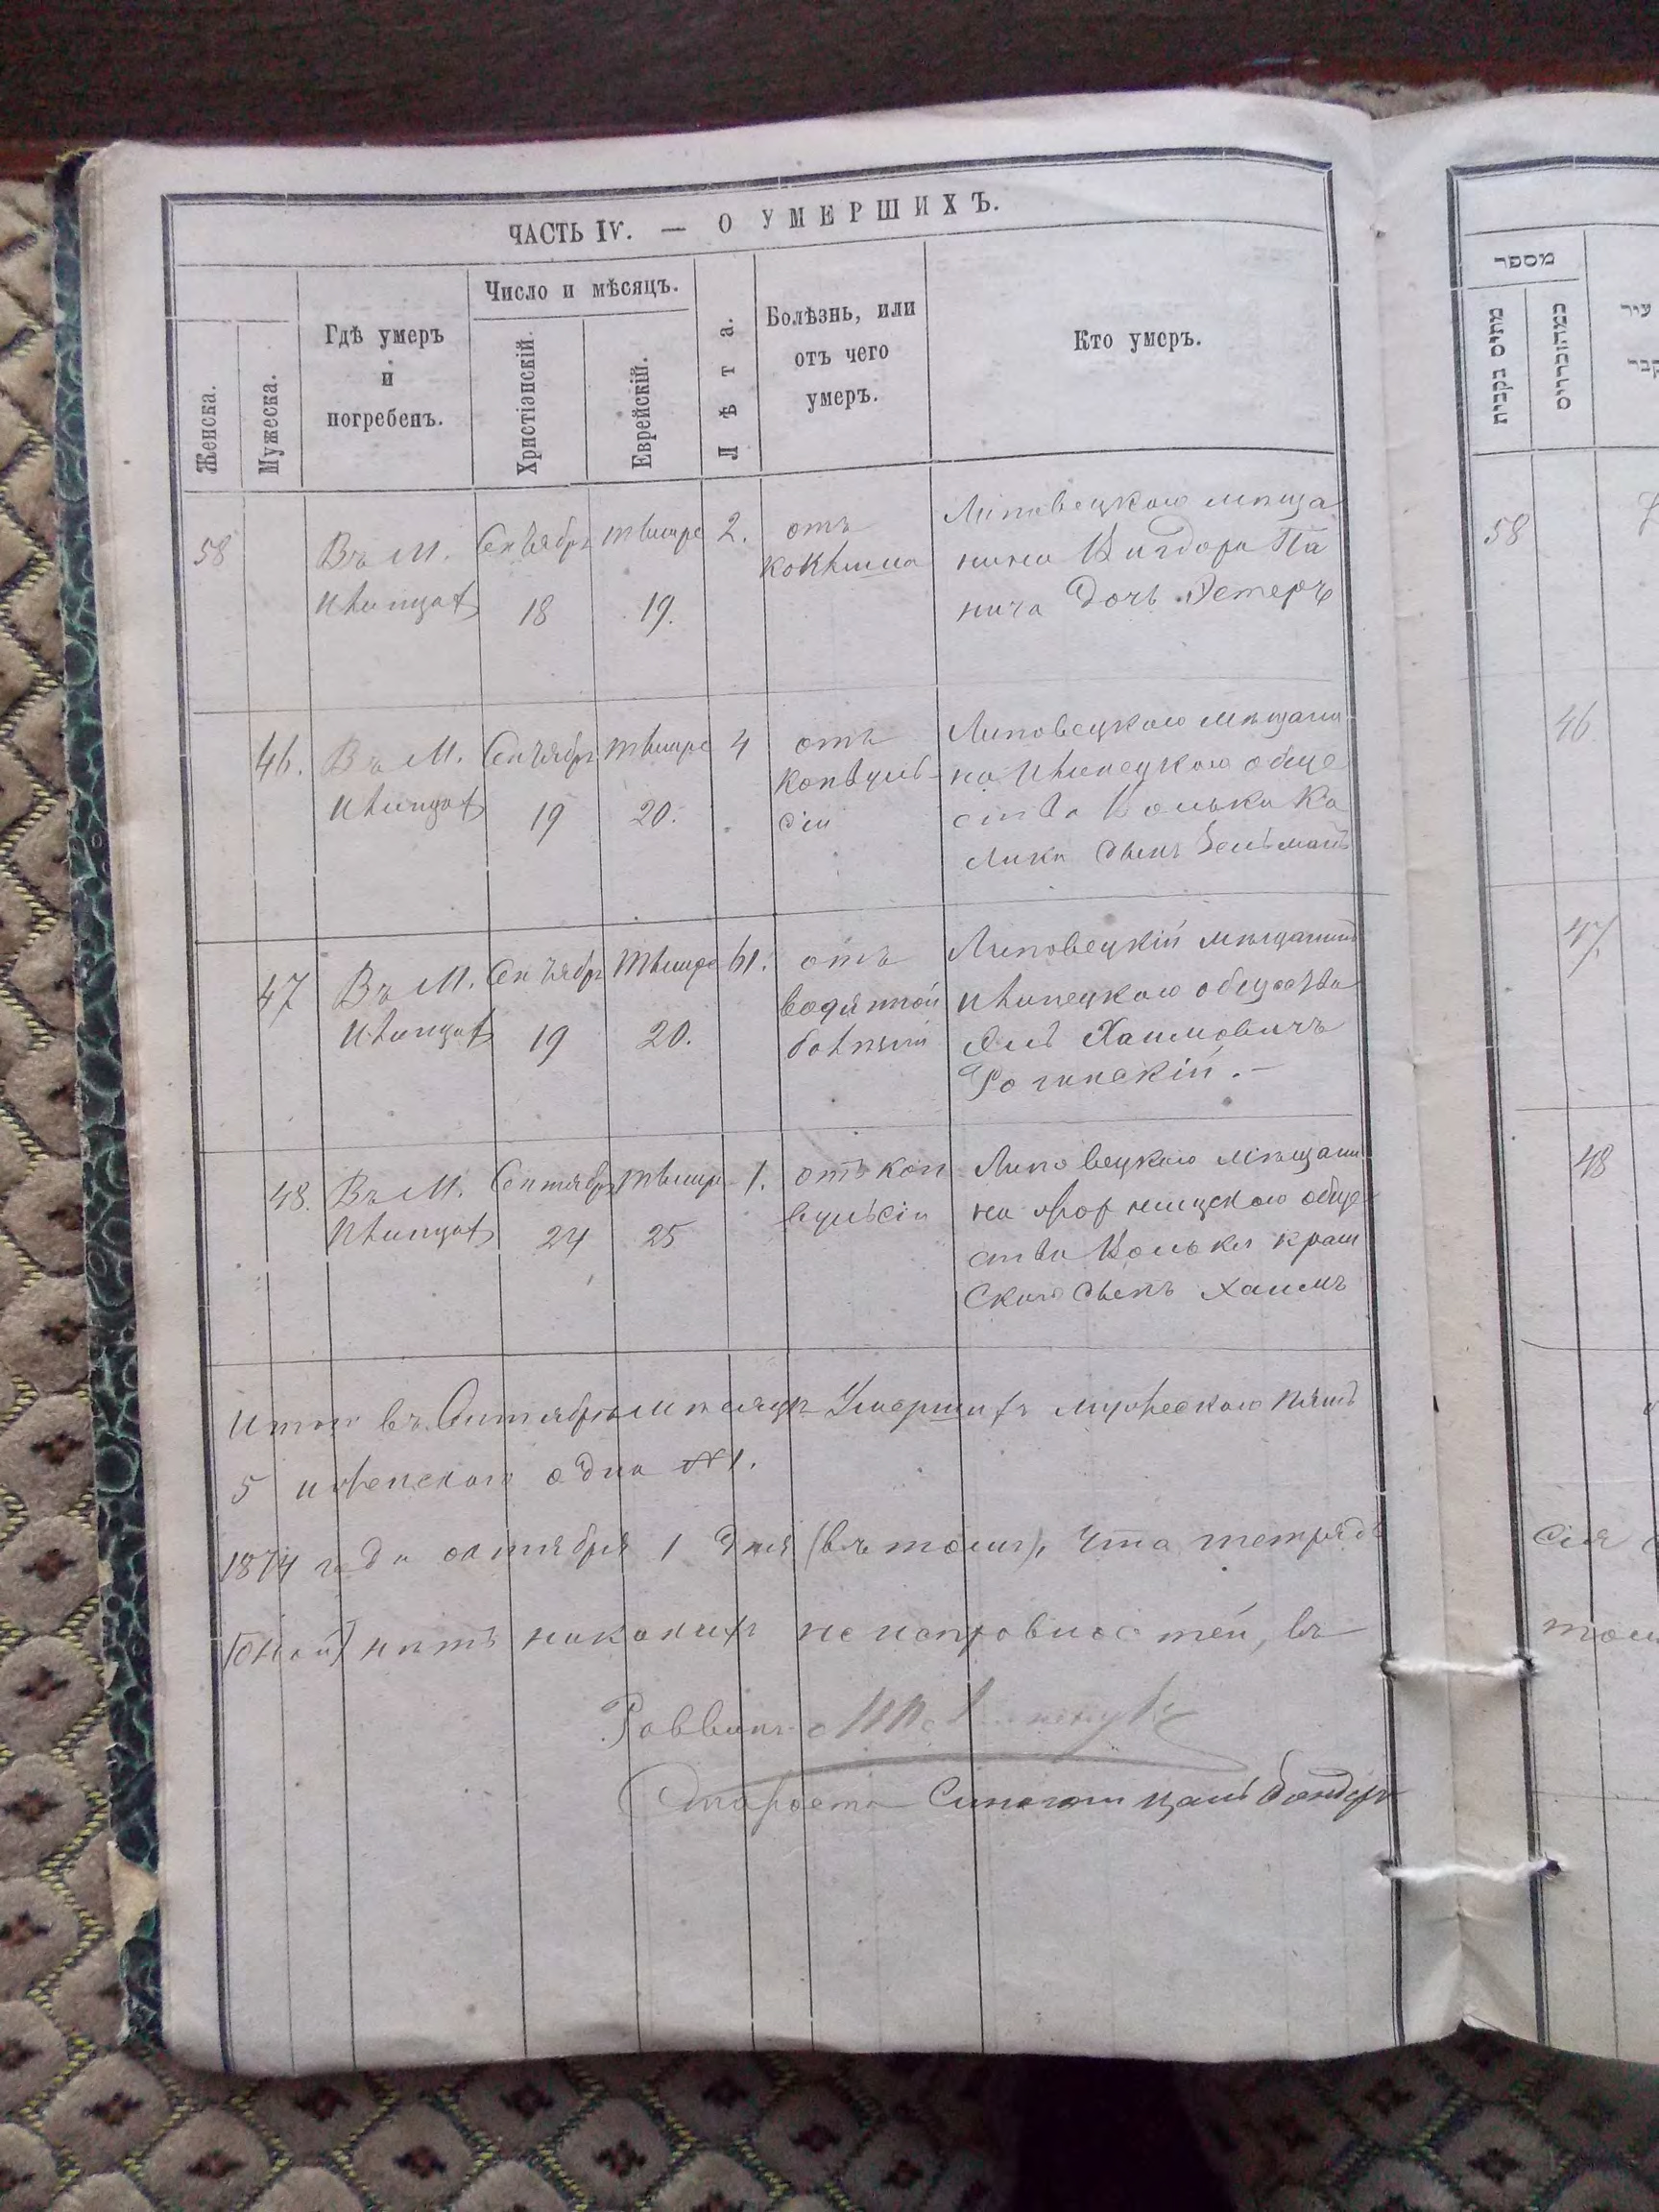 ЧАСТЬ IV. — О УМЕРШИХЪ.
Женска.
Мужеска.
Гдѣ умеръ
и
погребенъ.
Число и мѣсяцъ.
Христіанскій.
Еврейскій.
Лѣта.
Болѣзнь, или
отъ чего
умеръ.
Кто умеръ.
58
Въ М.
Сентябр
18
19.
2.
отъ
коклюша
Липовецкаго мѣща
нина Вигдора Па
нича дочь Эстеръ
46.
Въ М.
Сентябр
19
20.
4
отъ
конвуль
сіи
Липовецкаго мѣщани
на Илинецкаго обще
ства Волька Ка
лика сынъ Зельманъ
47
Въ М.
Сентябр
19
20.
61.
отъ
водянной
болѣзни
Липовецкій мѣщанинъ
Илинецкаго общества
Хаимовичъ
Рогинскій.—
48.
Въ М.
Сентябр
24
25
1.
отъ кон
вульсіи
Липовецкаго мѣщани
на общ
ства Волька краш
скаго сынъ Хаимъ
Итого въ Сентябрѣ мѣсяцѣ Умершихъ мужескаго пять
5 и женскаго одна 1.
1874 года октября 1 дня (въ томъ), что тетрядь
(оной) нѣтъ никакихъ неисправностей, въ
Раввинъ
Староста
מספר
מתים נקבות
עיר
58
46
47
48
сія
том